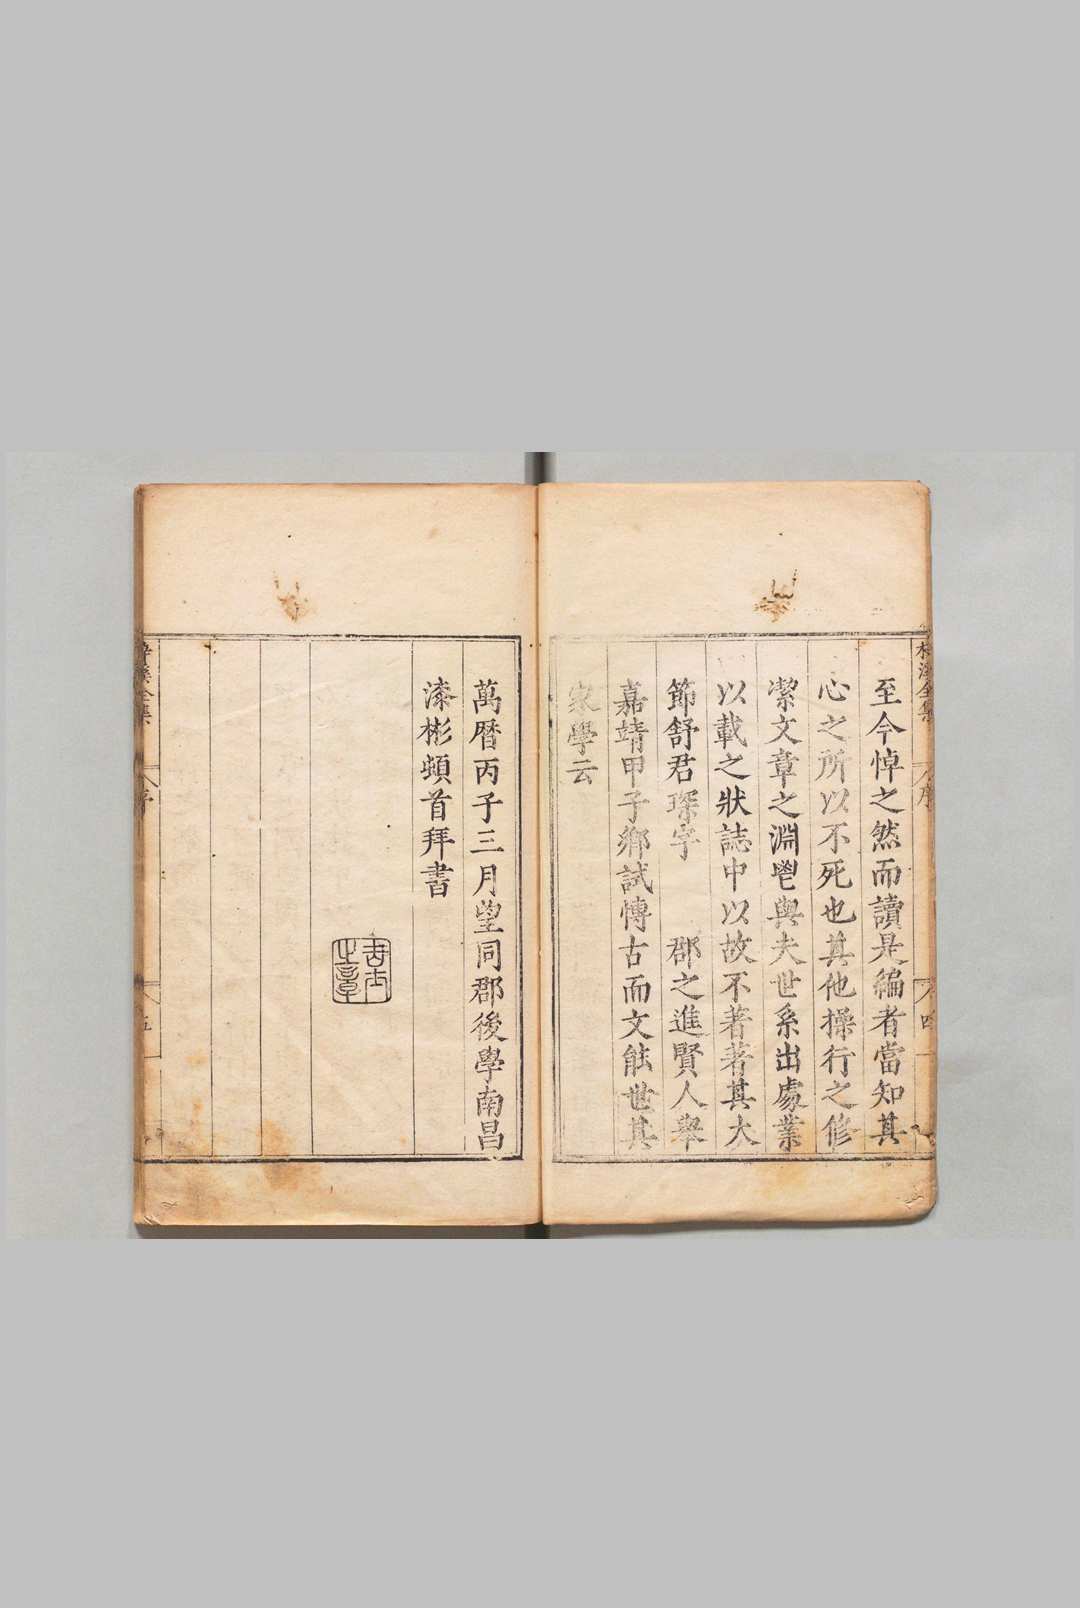 至今悼之然而讀是編者當知其
心之所以不死也其他操行之修
潔文章之淵鬯與夫世系出處業
以載之狀誌中以故不著著其大
節舒君琛字　　郡之進賢人舉
嘉靖甲子鄉試博古而文能世其
家學云
序
四
萬曆丙子三月望同郡後學南昌
漆彬頓首拜書
之章
序
五